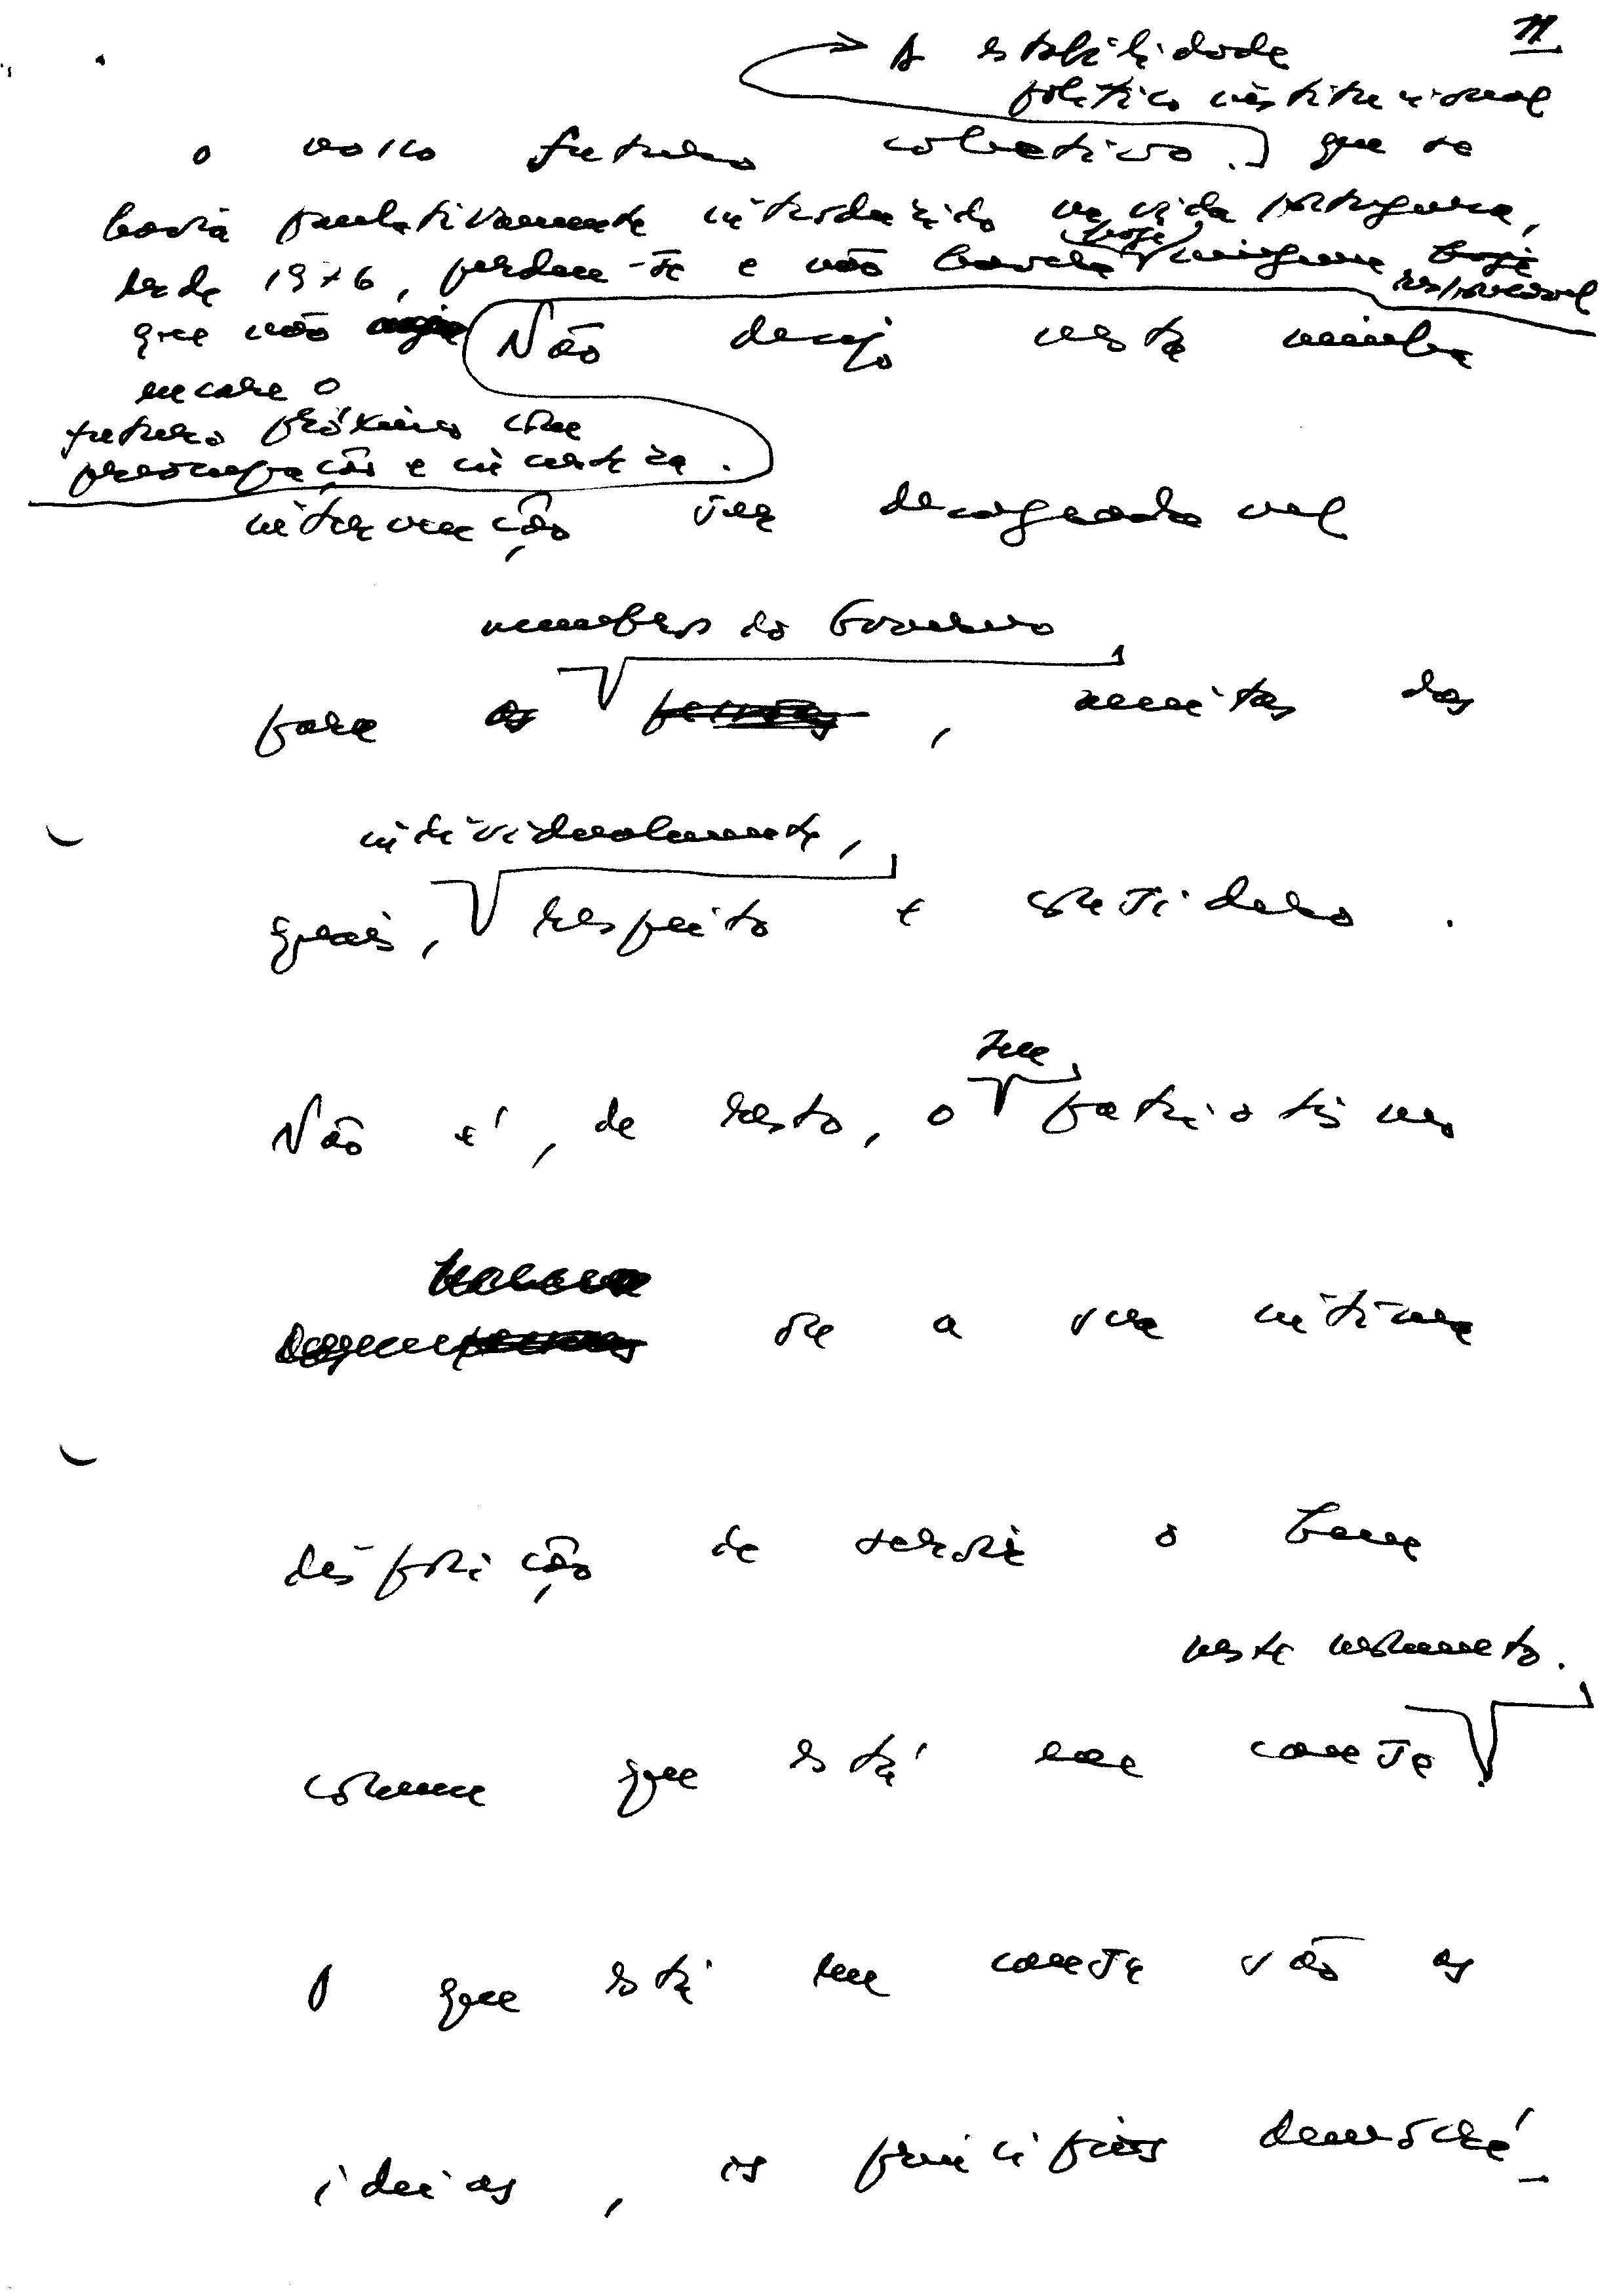 11
A estabilidade
político institucional
o nosso futuro colectivo. que se
havia paulativamente introduzido na vida portuguesa,
desde 1976, perdeu-se e não haverá hoje ninguem hoje
responsavel
que não
encare o
futuro próximo com
preocupação e incerteza.
Não desejo nesta minha
intervenção ser desagradavel
membros do Governo
para os pessoas, muitos dos
individualmente,
quais, respeito e considero.
seu
Não é, de resto, o patriotismo
ou a sua intima
disposição de servir o bem
neste momento.
comum que está em causa.
O que está em causa são as
ideias, os principios democrá_